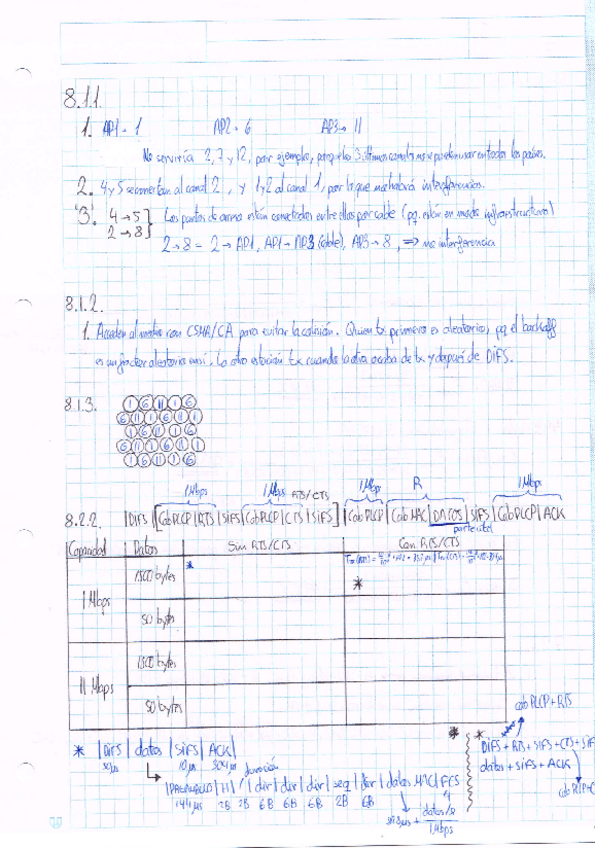 8.1.1.
1. AP1 - 1    AP2 - 6    AP3 → 11
No serviría 2, 7 y 12, por ejemplo, porque los 3 últimos canales no se pueden usar en todos los países.
2. 4 y 5 se conectan al canal 2, y 1 y 2 al canal 1, por lo que no habrá interferencias.
3. 4 → 5 } Los puntos de acceso están conectados entre ellos por cable (pq. están en modo infraestructura)
2 → 8
2 → 8 = 2 → AP1, AP1 → AP3 (cable), AP3 → 8, ⇒ no interferencia
8.1.2.
1. Acceden al medio con CSMA/CA para evitar la colisión. Quien tx primero es aleatorio, pq el backoff
es un factor aleatorio. La otra estación tx cuando la otra acaba de tx y después de DIFS.
8.1.3.
1 6 11 1 6
6 11 1 6 11 1
11 6 1 1 6
6 11 1 6 11 1
1 6 11 1 6
1 Mbps    1 Mbps RTS/CTS    1 Mbps    R    1 Mbps
8.2.2. |DIFS|[Cab PLCP|RTS|SIFS|Cab PLCP|CTS|SIFS]|Cab PLCP|Cab MAC|DATOS|SIFS|Cab PLCP|ACK
Capacidad | Datos | Sin RTS/CTS | Con RTS/CTS
1 Mbps | 1500 bytes | * | *
50 bytes
11 Mbps | 1500 bytes
50 bytes
* |DIFS| datos |SIFS|ACK|
10μs 304μs duración
|PREAMBULO|H|/|dir|dir|dir|seq|dir|datos MAC|FCS
144μs 2B 2B 6B 6B 6B 2B 6B
datos/R
1 Mbps
cab PLCP + RTS
* DIFS + RTS + SIFS + CTS + SIF
datos + SIFS + ACK